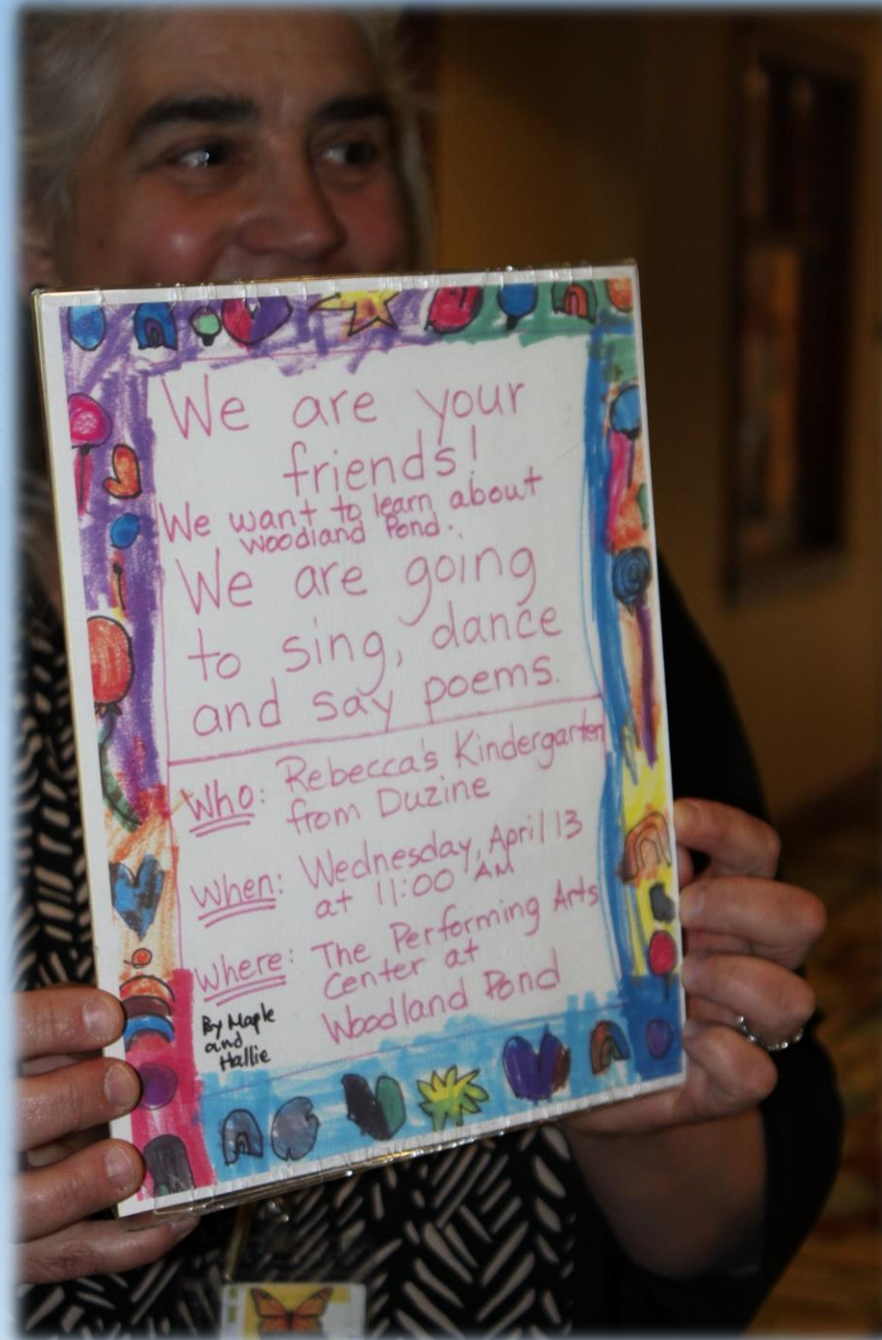 We are your
friends!
We want to learn about
Woodland Pond.
We are going
to sing, dance
and say poems.
Who: Rebecca's Kindergarten
from Duzine
When: Wednesday, April 13
at 11:00 AM
Where: The Performing Arts
Center at
Woodland Pond
By Maple
and
Hallie